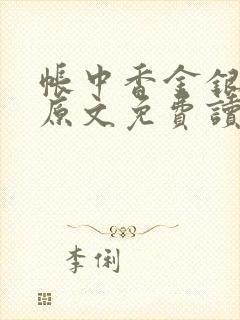 帳中香金銀
原文免費讀
李俐